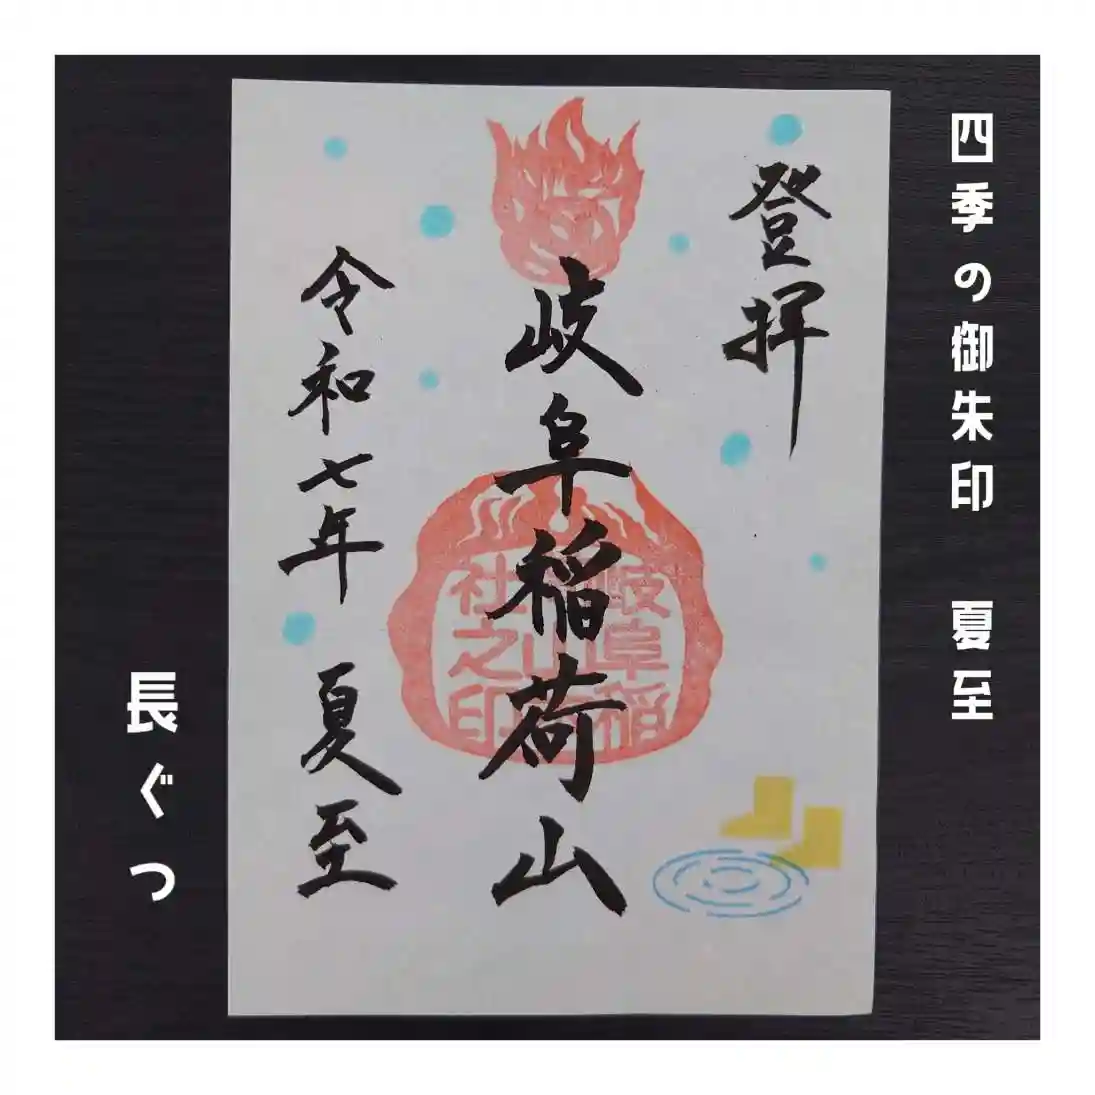 四季の御朱印 夏至
登拝
岐阜稲荷山
岐阜稲
山
社之印
令和七年 夏至
長ぐつ